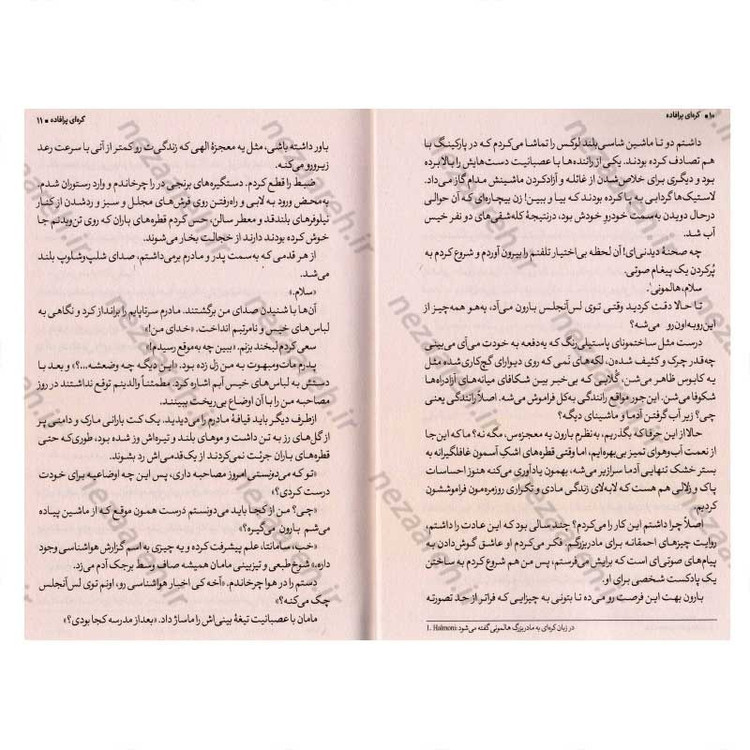 ۱۰ ■ کره‌ای پرافاده
داشتم دو تا ماشین شاسی بلند لوکس را تماشا می‌کردم که در پارکینگ با
هم تصادف کرده بودند. یکی از راننده‌ها با عصبانیت دست‌هایش را بالا برده
بود و دیگری برای خلاص شدن از غائله و آزاد کردن ماشینش مدام گاز می‌داد.
لاستیک‌ها گردابی به پا کرده بودند که بیا و ببین! زن بیچاره‌ای که آن حوالی
درحال دویدن به‌سمت خودرو خودش بود، درنتیجهٔ کله‌شقی‌های دو نفر خیس
آب شد.
چه صحنهٔ دیدنی‌ای! آن لحظه بی‌اختیار تلفنم را بیرون آوردم و شروع کردم به
پُر کردن یک پیغام صوتی.
سلام، هالمونی¹.
تا حالا دقت کردید وقتی توی لس‌آنجلس بارون می‌آد، یه‌هو همه‌چیز از
این‌رو به اون‌رو می‌شه؟
درست مثل ساختمونای پاستیلی‌رنگ که یه‌دفعه به خودت می‌آی می‌بینی
چه‌قدر چرک و کثیف شده‌ن، لکه‌های نمی که روی دیوارای گچ‌کاری شده مثل
یه کابوس ظاهر می‌شن، گُلایی که بی‌خبر بین شکافای میانه‌های آزادراه‌ها
شکوفا می‌شن. این‌جور مواقع رانندگی به‌کل فراموش می‌شه. اصلاً رانندگی یعنی
چی؟ زیر آب گرفتن آدما و ماشینای دیگه؟
حالا از این حرفا که بگذریم، به‌نظرم بارون یه معجزه‌س، مگه نه؟ ما که این‌جا
از نعمت آب‌وهوای تمیز بی‌بهره‌ایم، اما وقتی قطره‌های اشک آسمون غافلگیرانه به
بستر خشک تنهایی آدما سرازیر می‌شه، بهمون یادآوری می‌کنه هنوز احساسات
پاک و زلالی هم هست که لابه‌لای زندگی مادی و تکراری روزمره‌مون فراموششون
کردیم.
اصلاً چرا داشتم این کار را می‌کردم؟ چند سالی بود که این عادت را داشتم،
روایت چیزهای احمقانه برای مادربزرگم. فکر می‌کردم او عاشق گوش دادن به
پیام‌های صوتی‌ای است که برایش می‌فرستم، پس من هم شروع کردم به ساختن
یک پادکست شخصی برای او.
بارون بهت این فرصت رو می‌ده تا بتونی به چیزایی که فراتر از حد تصورته
1. Halmoni: در زبان کره‌ای به مادربزرگ هالمونی گفته می‌شود
کره‌ای پرافاده ■ ۱۱
باور داشته باشی، مثل یه معجزهٔ الهی که زندگی‌ت رو کمتر از آنی با سرعت رعد
زیرورو می‌کنه.
ضبط را قطع کردم. دستگیره‌های برنجی در را چرخاندم و وارد رستوران شدم.
به‌محض ورود به لابی و راه رفتن روی فرش‌های مجلل و سبز و رد شدن از کنار
نیلوفرهای بلندقد و معطر سالن، حس کردم قطره‌های باران که روی تن و بدنم جا
خوش کرده بودند دارند از خجالت بخار می‌شوند.
از هر قدمی که به‌سمت پدر و مادرم برمی‌داشتم، صدای شلپ‌وشلوپ بلند
می‌شد.
«سلام.»
آن‌ها با شنیدن صدای من برگشتند. مادرم سرتاپایم را برانداز کرد و نگاهی به
لباس‌های خیس و نامرتبم انداخت. «خدای من!»
سعی کردم لبخند بزنم. «ببین چه به‌موقع رسیدم!»
پدرم مات‌ومبهوت به من زل زده بود. «این دیگه چه وضعشه...؟» و بعد با
دستش به لباس‌های خیس آبم اشاره کرد. مطمئناً والدینم توقع نداشتند در روز
مصاحبه من را با آن اوضاع بی‌ریخت ببینند.
ازطرف دیگر باید قیافهٔ مادرم را می‌دیدید. یک کت بارانی مارک و دامنی پر
از گل‌های رز به تن داشت و موهای بلند و تیره‌اش وز شده بود، طوری‌که حتی
قطره‌های باران جرئت نمی‌کردند از یک‌قدمی‌اش رد بشوند.
«تو که می‌دونستی امروز مصاحبه داری، پس این چه اوضاعیه برای خودت
درست کردی؟»
«چی؟ من از کجا باید می‌دونستم درست همون موقع که از ماشین پیاده
می‌شم بارون می‌گیره؟»
«خب، سامانتا، علم پیشرفت کرده و یه چیزی به اسم گزارش هواشناسی وجود
داره.» شوخ‌طبعی و تیزبینی مامان همیشه صاف وسط برجک آدم می‌زد.
دستم را در هوا چرخاندم. «آخه کی اخبار هواشناسی رو، اونم توی لس‌آنجلس
چک می‌کنه؟»
مامان با عصبانیت تیغهٔ بینی‌اش را ماساژ داد. «بعد از مدرسه کجا بودی؟»
nezaareh.ir